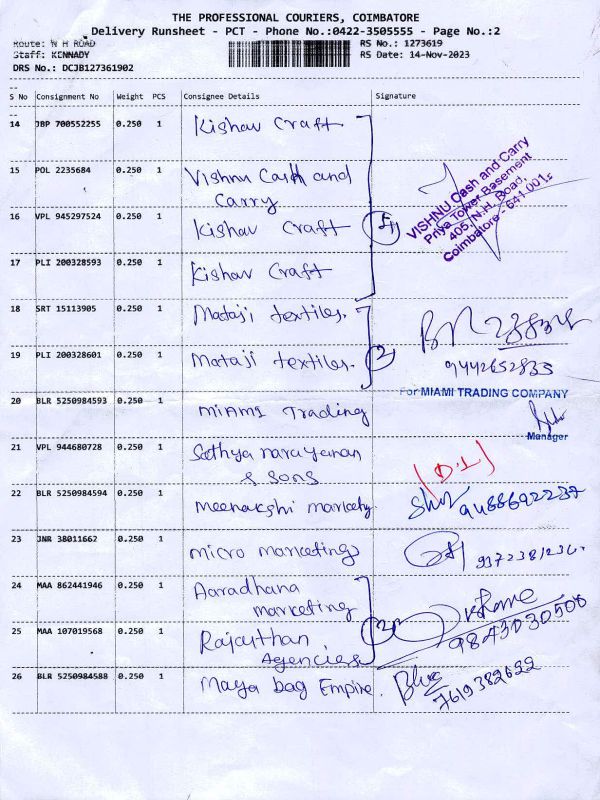 THE PROFESSIONAL COURIERS, COIMBATORE
Delivery Runsheet - PCT - Phone No.:0422-3505555 - Page No.:2
Route: N H ROAD
Staff: KENNADY
DRS No.: DCJB127361902
RS No.: 1273619
RS Date: 14-Nov-2023
S No Consignment No Weight PCS Consignee Details Signature
14 JBP 700552255 0.250 1 Kishav Craft
15 POL 2235684 0.250 1 Vishnu Cash and
Carry
16 VPL 945297524 0.250 1 Kishav Craft
VISHNU Cash and Carry
Priya Tower Basement
405, N.H. Road,
Coimbatore - 641 001.
17 PLI 200328593 0.250 1 Kishav Craft
18 SRT 15113905 0.250 1 Mataji textiles.
19 PLI 200328601 0.250 1 Mataji textiles. 2
9442652835
20 BLR 5250984593 0.250 1 MIAMI Trading
For MIAMI TRADING COMPANY
Manager
21 VPL 944680728 0.250 1 Sathya narayanan
& Sons
22 BLR 5250984594 0.250 1 Meenakshi markety
23 JNR 38011662 0.250 1 Micro marketings
24 MAA 862441946 0.250 1 Aaradhana
marketing
25 MAA 107019568 0.250 1 Rajasthan
Agencies 2
9843030508
26 BLR 5250984588 0.250 1 Maya bag Empire.
7619382622